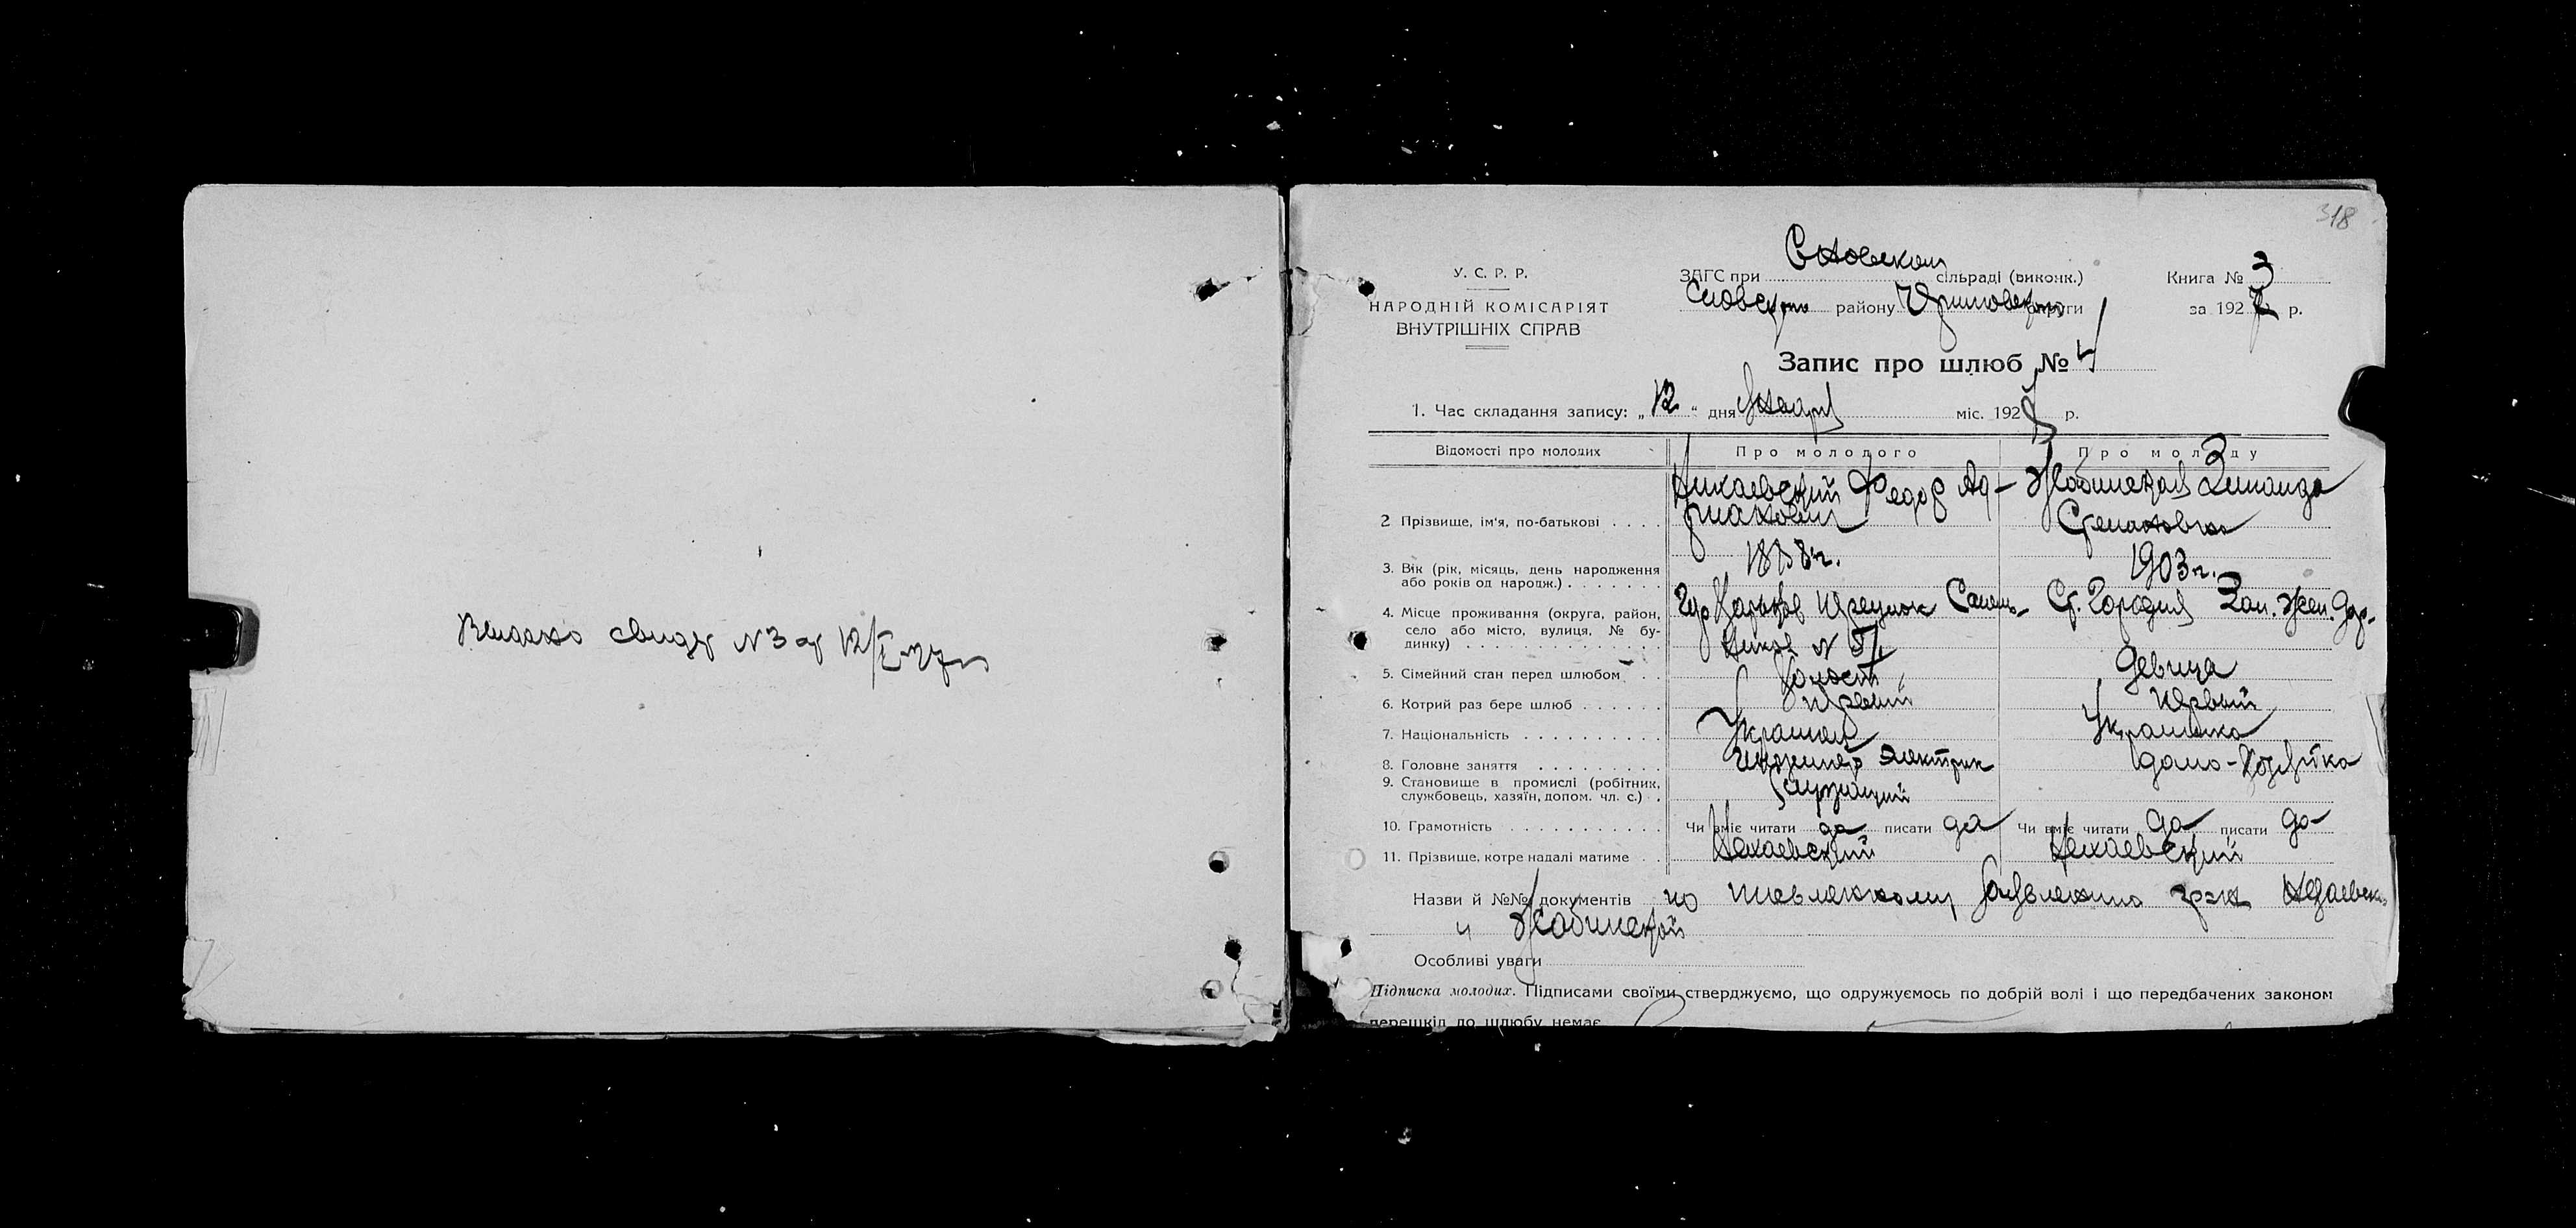 Выдано свидет N 3 от 12/I-27 г
318
У. С. Р. Р.
НАРОДНІЙ КОМІСАРІЯТ
ВНУТРІШНІХ СПРАВ
ЗАГС при Сновском сільраді (виконк.)
Сновскро району округи
Книга № 3
за 1927 р.
Запис про шлюб № 4
1. Час складання запису: „12“ дня Января міс. 1927 р.
Відомості про молодих
Про молодого
Про молоду
2 Прізвище, ім'я, по-батькові . . . .
Федор Ад-
рианович
Жабинская Зинаида
Степановна
3. Вік (рік, місяць, день народження
або років од народж.) . . . . . . .
1903 г.
4. Місце проживання (округа, район,
село або місто, вулиця, № бу-
динку) . . . . . . . . . . . . . .
гор Харьков
Ст. Городня Зап. жел. дор.
5. Сімейний стан перед шлюбом . .
холост
девица
6. Котрий раз бере шлюб . . . . . .
первый
первый
7. Національність . . . . . . . . . .
Украинец
Украинка
8. Головне заняття . . . . . . . . .
Инженер электрик
домо-хозяйка
9. Становище в промислі (робітник,
службовець, хазяїн, допом. чл. с.) .
служащий
10. Грамотність . . . . . . . . . . .
Чи вміє читати да писати да
Чи вміє читати да писати да
11. Прізвище, котре надалі матиме . .
Некаевский
Некаевский
Назви й №№ документів по письменному заявлению граж
и Жабинской
Особливі уваги
Підписка молодих. Підписами своїми стверджуємо, що одружуємось по добрій волі і що передбачених законом
перешкід до шлюбу немає